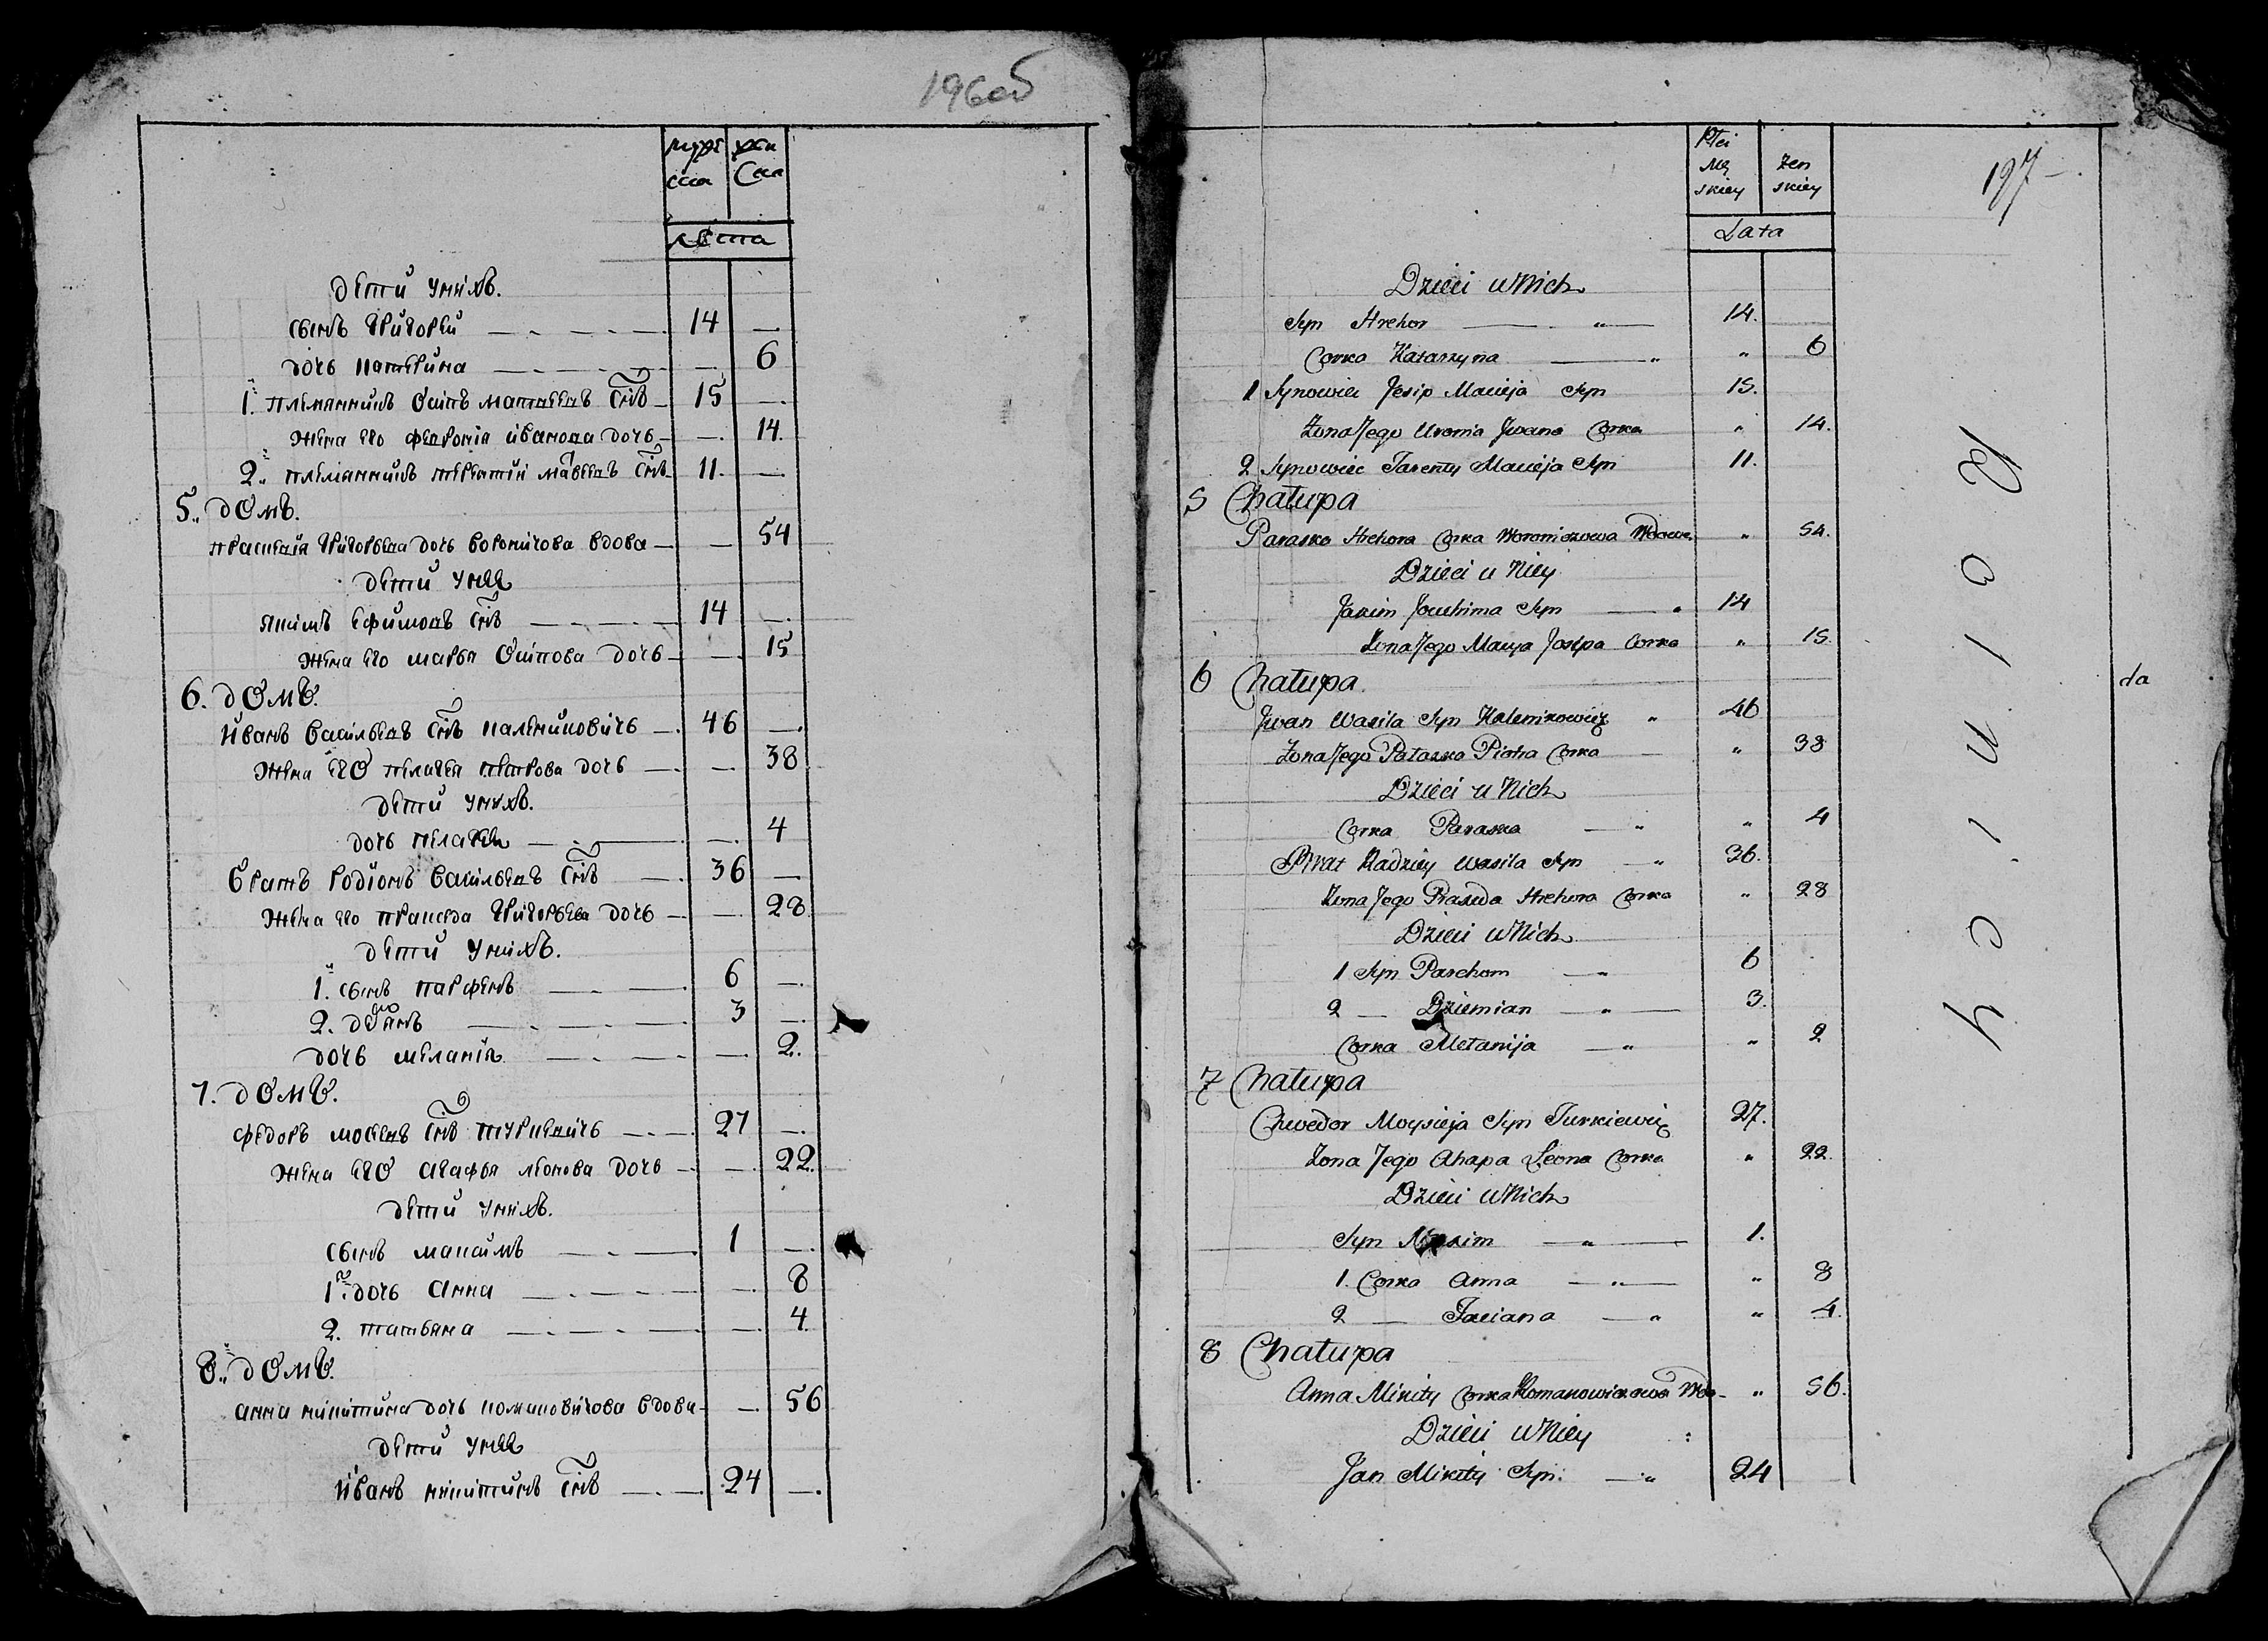 196об
муже ска | жен ска
лѣта
дѣти у нихъ.
сынъ григорей 14 —
дочь катерина — 6
1. племянникъ осипъ матвеевъ сынъ 15 —
жена его февронiя иванова дочь — 14.
2. племянникъ терентiй матвеевъ сынъ 11. —
5. домъ.
прасковiя григорьева дочь вороничова вдова — 54
дѣти у нее
якимъ ефимовъ сынъ 14 —
жена его марья осипова дочь — 15
6. домъ.
иванъ васильевъ сынъ калениковичь 46 —
жена его пелагея петрова дочь — 38
дѣти у нихъ.
дочь пелагея — 4
братъ родiонъ васильевъ сынъ 36 —
жена его пракседа григорьева дочь — 28
дѣти у нихъ.
1. сынъ парфенъ 6 —
2. демянъ 3 —
дочь меланiя — 2.
7. домъ.
федоръ мосеевъ сынъ туркевичь 27 —
жена его агафья леонова дочь — 22.
дѣти у нихъ.
сынъ максимъ 1 —
1. дочь анна — 8
2. татьяна — 4.
8. домъ.
анна никитина дочь комановичова вдова — 56
дѣти у нее
иванъ никитинъ сынъ 24 —
197
Płci Mę skiey | żen skiey
Lata
Dzieci u Nich
Syn Hrehor " 14.
Corka Katarzyna " " 6
1 Synowiec Jesip Macieja Syn 15.
Żona Jego Uronia Jwana Corka " 14.
2 Synowiec Tarenty Macieja Syn 11.
5 Chałupa
Paraska Hrehora Corka Woroniczowa Wdowa " 54.
Dzieci u Niey
Jakim Jouchima Syn 14
Żona Jego Marya Josepa Corka " 15.
6 Chałupa
Jwan Wasila Syn Kalenikowicz " 46
Żona Jego Pałaszka Piotra Corka " 38
Dzieci u Nich
Corka Paraska " " 4
Brat Radziey Wasila Syn " 36.
Żona Jego Praseda Hrehora Corka " 28
Dzieci u Nich
1 Syn Parchom " 6
2 — Dziemian " 3.
Corka Mełanija " " 2
7 Chałupa
Chwedor Moysieja Syn Turkiewicz 27.
Żona Jego Ahapa Leona Corka " 22.
Dzieci u Nich
Syn Maxim " 1.
1. Corka Anna " " 8
2 — Taciana " " 4.
8 Chałupa
Anna Mikity Corka Komanowiczowa Wdo- " 56.
Dzieci u Niey
Jan Mikity Syn " 24
da